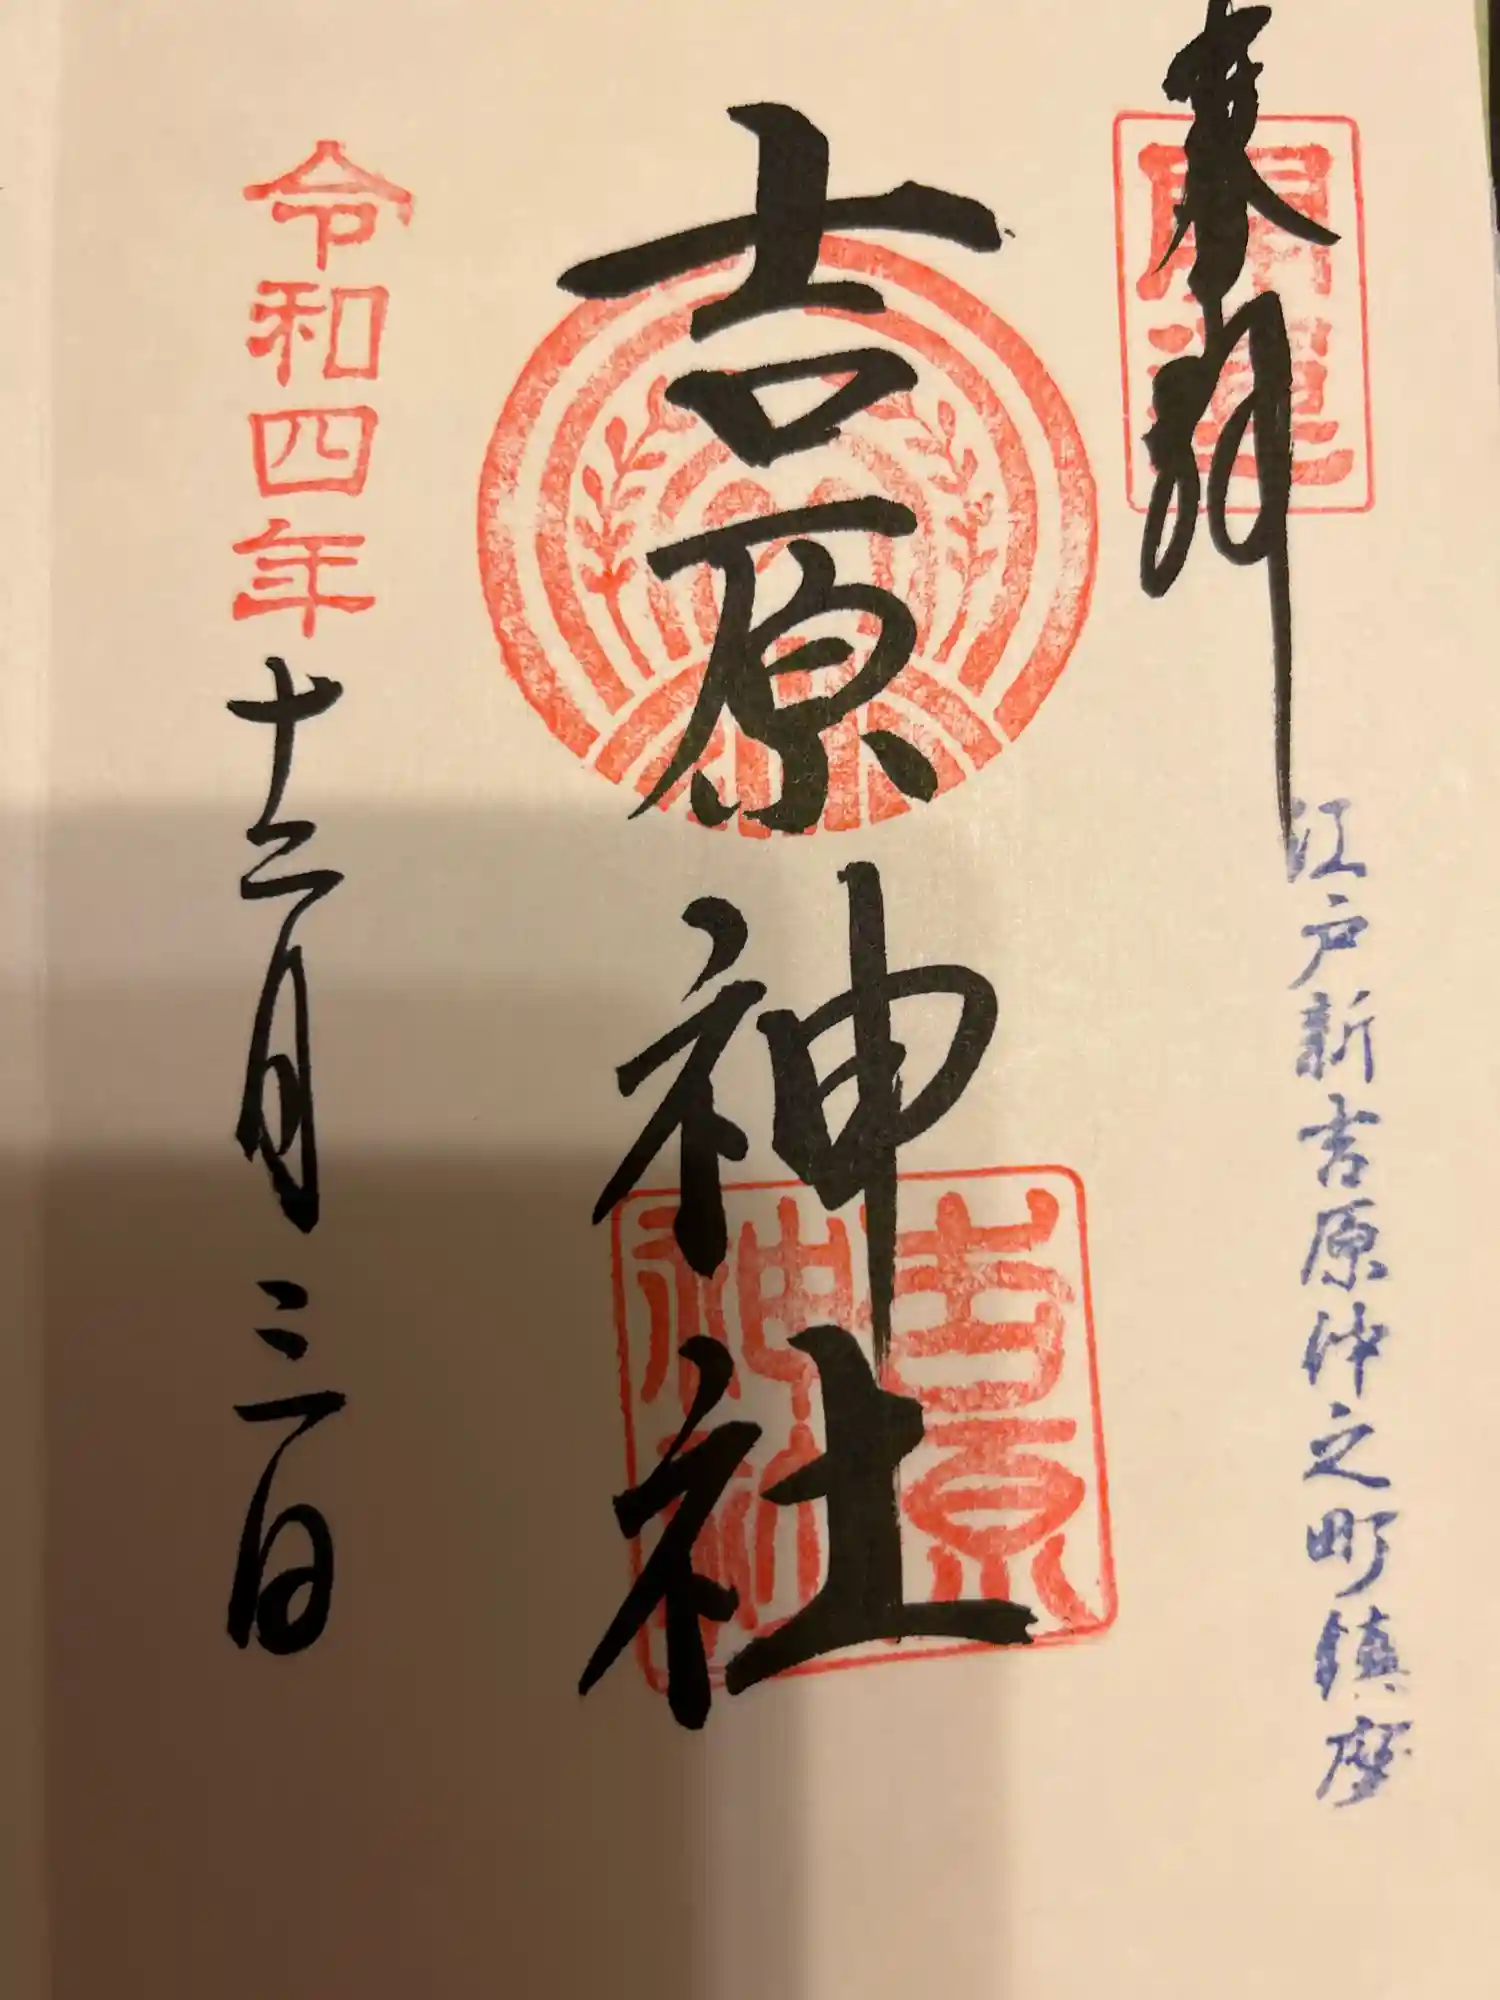 奉拝
開運
江戸新吉原仲之町鎮座
吉原神社
吉原
神社
令和四年
十二月三日